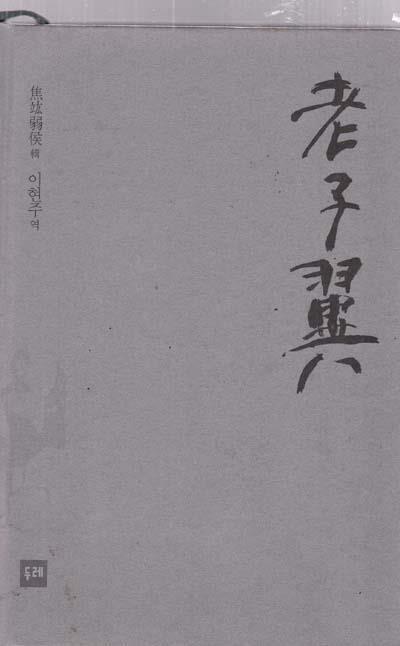 老子翼
焦竑弱侯 輯 이현주 역
두레